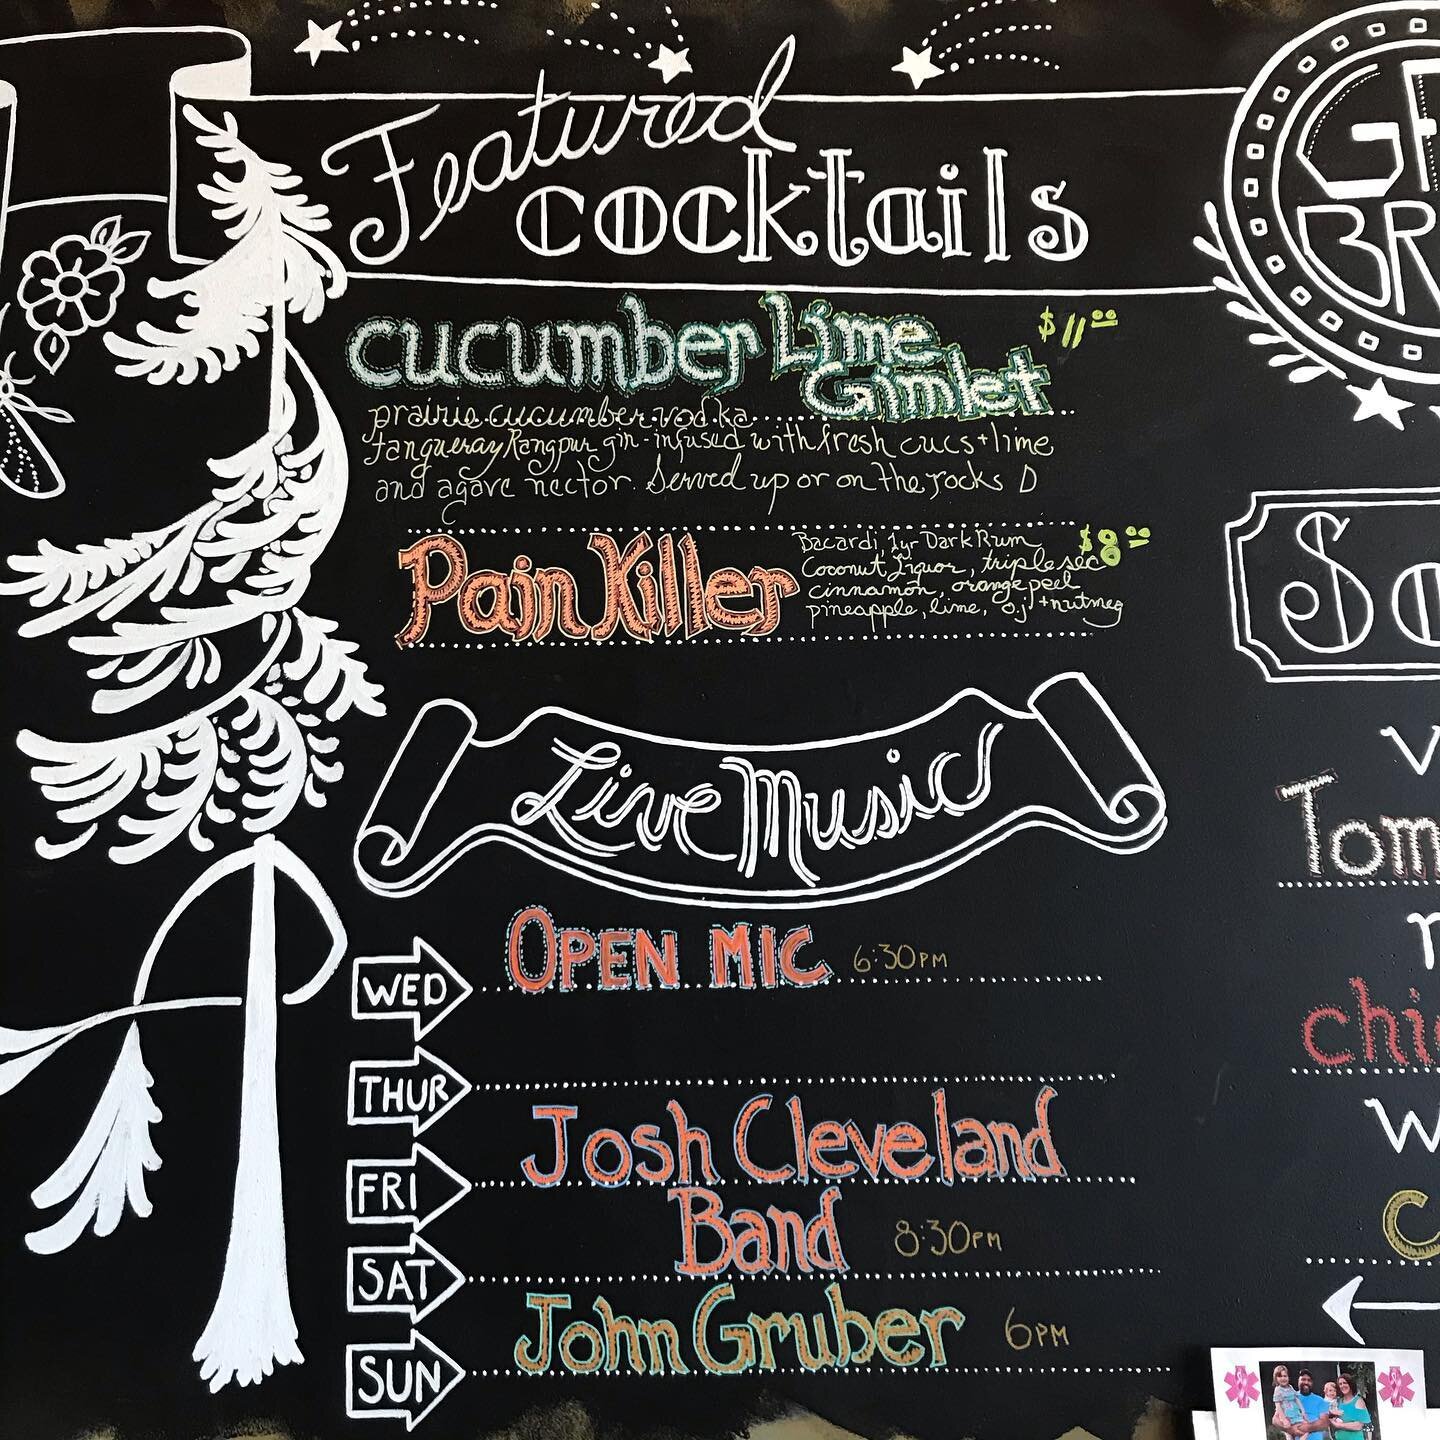 Featured
cocktails
cucumber Lime
Gimlet
$11.00
prairie cucumber vodka
tanqueray Rangpur gin - infused with fresh cucs + lime
and agave nector. Served up or on the rocks
PainKiller
$8.00
Bacardi, 1yr Dark Rum
Coconut Liquor, triple sec
cinnamon, orange peel
pineapple, lime, o.j. + nutmeg
Live Music
WED OPEN MIC 6:30PM
THUR
FRI Josh Cleveland
Band 8:30PM
SAT
SUN John Gruber 6PM
BR
Tom
chi